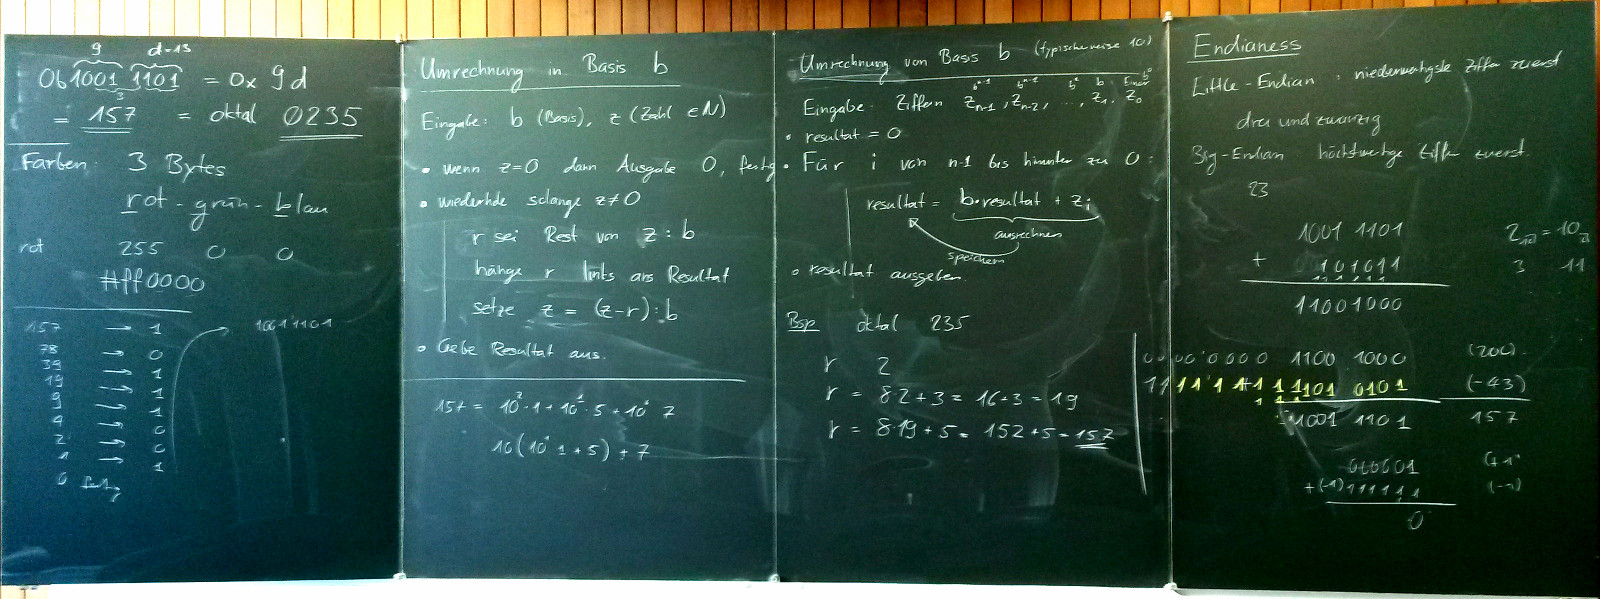 9 d=13
0b1001 1101 = 0x 9d
3
= 157 = oktal 0235
Farben: 3 Bytes
rot - grün - blau
rot 255 0 0
#ff0000
157 → 1 1001 1101
78 → 0
39 → 1
19 → 1
9 → 1
4 → 0
2 → 0
1 → 1
0 fertig
Umrechnung in Basis b
Eingabe: b (Basis), z (Zahl ∈ N)
• wenn z=0 dann Ausgabe 0, fertig
• wiederhole solange z≠0
r sei Rest von z : b
hänge r links ans Resultat
setze z = (z-r) : b
• Gebe Resultat aus.
157 = 10² · 1 + 10¹ · 5 + 10⁰ 7
10(10¹ 1 + 5) + 7
Umrechnung von Basis b (typischerweise 10)
bⁿ⁻¹ bⁿ⁻² b² b Einer b⁰
Eingabe: Ziffern zₙ₋₁, zₙ₋₂, ..., z₁, z₀
• resultat = 0
• Für i von n-1 bis hinunter zu 0 :
resultat = b·resultat + zᵢ
ausrechnen
speichern
• resultat ausgeben.
Bsp oktal 235
r 2
r = 8·2+3 = 16+3 = 19
r = 8·19+5 = 152+5 = 157
Endianess
Little-Endian : niederwertigste Ziffer zuerst
drei und zwanzig
Big-Endian höchstwertige Ziffer zuerst.
23
1001 1101 2 = 10
+ 101011 3 11
11001000
00000000 1100 1000 (200)
11111111 1101 0101 (-43)
1001 1101 157
000001 (+1)
+(-1) 111111 (-1)
0